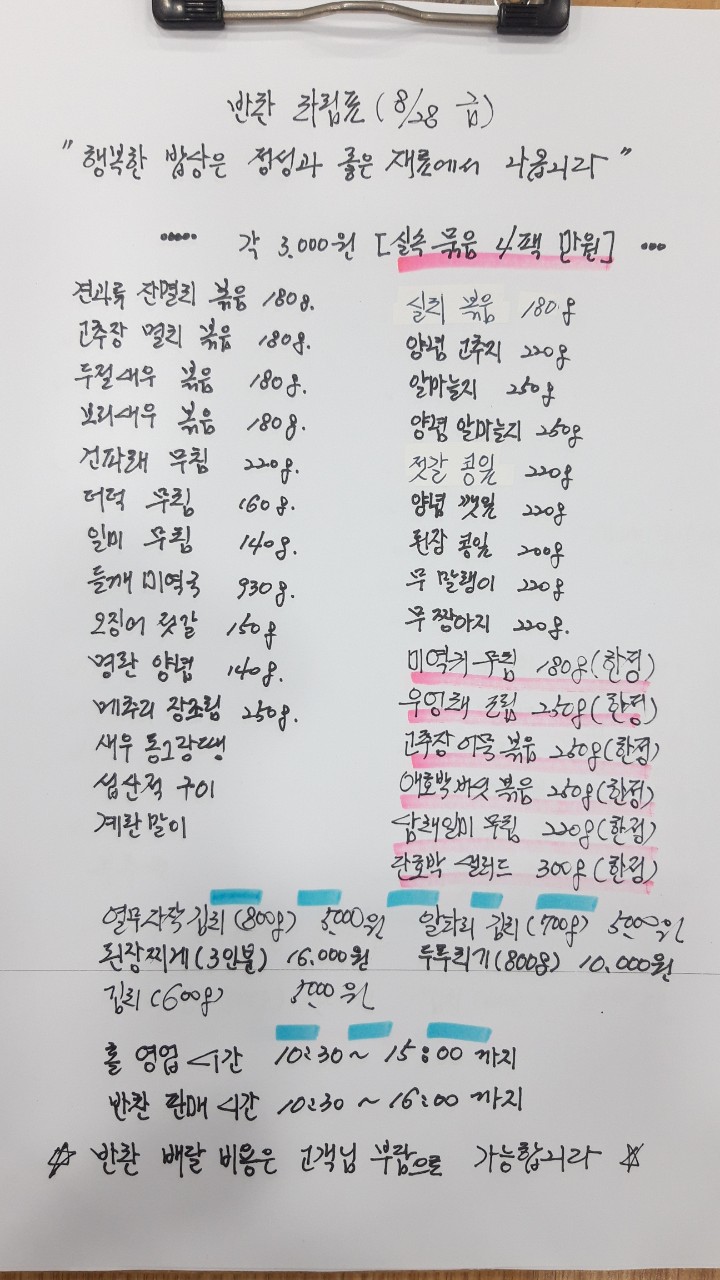 반찬 차림표 (8/28 금)
"행복한 밥상은 정성과 좋은 재료에서 나옵니다"
•••• 각 3,000원 [실속 묶음 4팩 만원] •••
견과류 잔멸치 볶음 180g.
고추장 멸치 볶음 180g.
두절새우 볶음 180g.
보리새우 볶음 180g.
건파래 무침 220g.
더덕 무침 160g.
일미 무침 140g.
들깨 미역국 930g.
오징어 젓갈 150g
명란 양념 140g.
메추리 장조림 250g.
새우 동그랑땡
섭산적 구이
계란말이
실치 볶음 180g
양념 고추지 220g
알마늘지 250g
양념 알마늘지 250g
젓갈 콩잎 220g
양념 깻잎 220g
된장 콩잎 200g
무 말랭이 220g
무 짱아지 220g.
미역귀 무침 180g (한정)
우엉채 조림 250g (한정)
고추장 어묵 볶음 250g (한정)
애호박버섯 볶음 250g (한정)
삼채일미 무침 220g (한정)
단호박 샐러드 300g (한정)
열무자박김치 (800g) 5,000원 알타리 김치 (700g) 5,000원
된장찌게 (3인분) 16,000원 두루치기 (800g) 10,000원
김치 (600g) 5,000원
홀 영업 시간 10:30 ~ 15:00 까지
반찬 판매 시간 10:30 ~ 16:00 까지
☆ 반찬 배달 비용은 고객님 부담으로 가능합니다 ☆